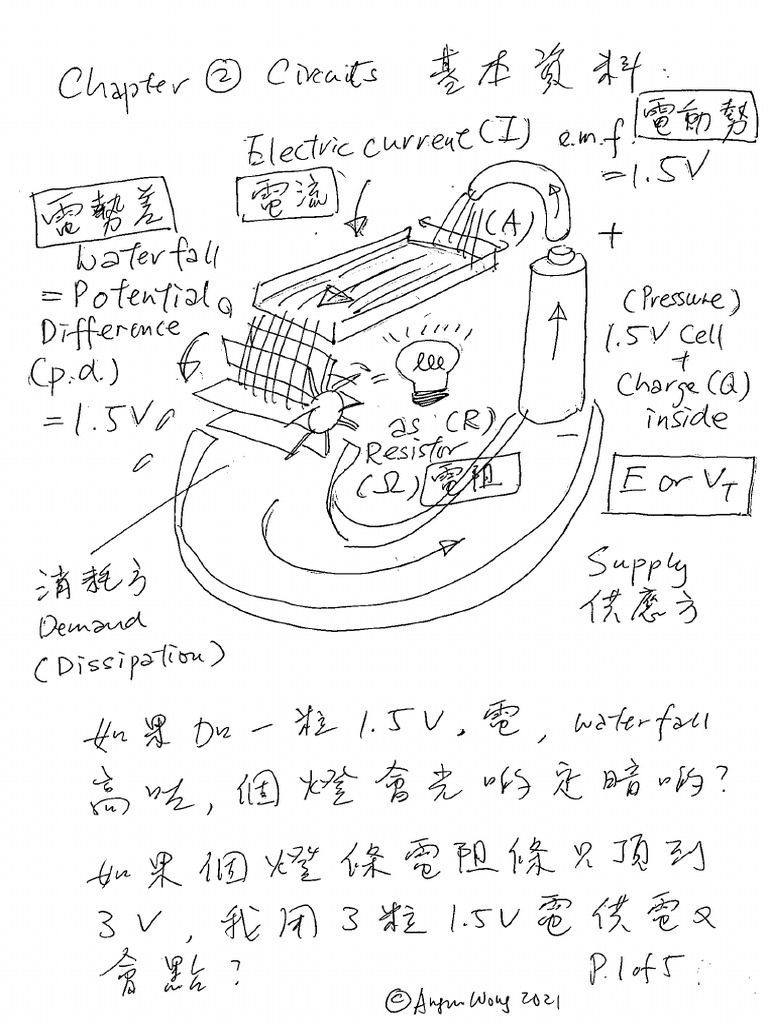 Chapter ② Circuits 基本資料:
Electric current (I)
電流
e.m.f. 電動勢
= 1.5V
電勢差
Waterfall
= Potential
Difference
(p.d.)
= 1.5V
Q
(A)
+
(Pressure)
1.5V Cell
+
Charge (Q)
inside
−
as (R)
Resistor
(Ω) 電阻
E or V_T
消耗方
Demand
(Dissipation)
Supply
供應方
如果加一粒 1.5V 電, waterfall
高咗, 個燈會光啲定暗啲?
如果個燈條電阻條只頂到
3V, 我用3粒 1.5V 電供電又
會點?
P.1 of 5
© Wong 2021